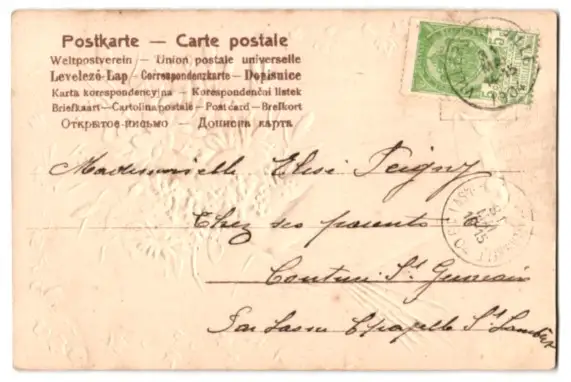 Postkarte — Carte postale
Weltpostverein — Union postale universelle
Levelező-Lap — Correspondenzkarte — Dopisnice
Karta korespondencyjna — Korespondenčni listek
Briefkaart — Cartolina postale — Post card — Brefkort
Открытое письмо — Дописна карта
Mademoiselle Elise Teigny
Chez ses parents à
Couture St Germain
Par Lasne Chapelle St Lambert
1904